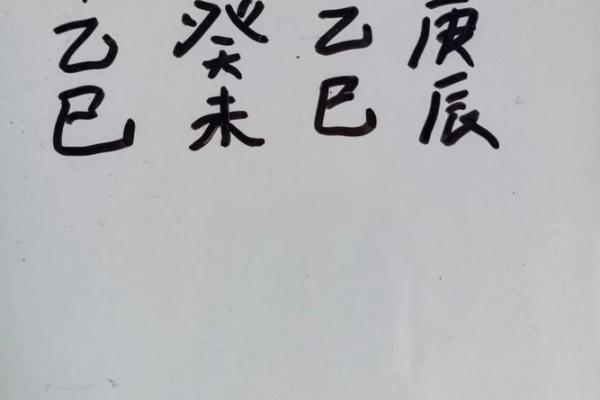 乙 癸 乙 庚
巳 未 巳 辰